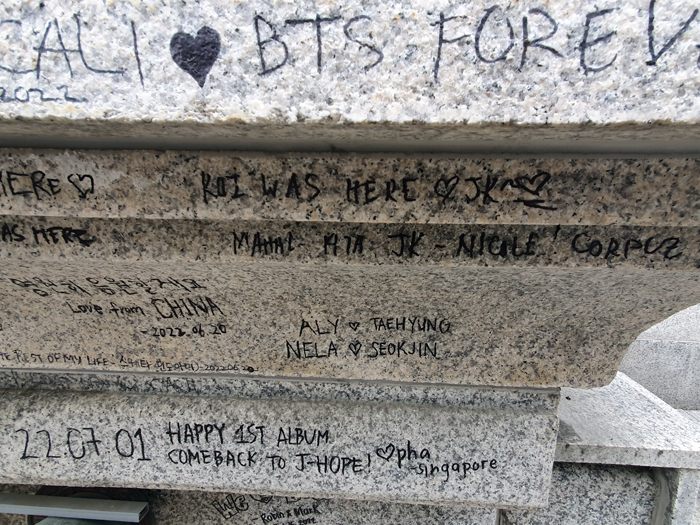 CALI ♥ BTS FOREV
2022
HERE ♡ KOI WAS HERE ♡ JK ♡
AS HERE MAHAL KITA JK - NICOLE CORPUZ
영원히 응원할게요
Love from CHINA
-2022.06.20
ALY ♡ TAEHYUNG
NELA ♡ SEOKJIN
REST OF MY LIFE
22.07 01 HAPPY 1ST ALBUM
COMEBACK TO J-HOPE! ♡pha
singapore
Robin & Mark